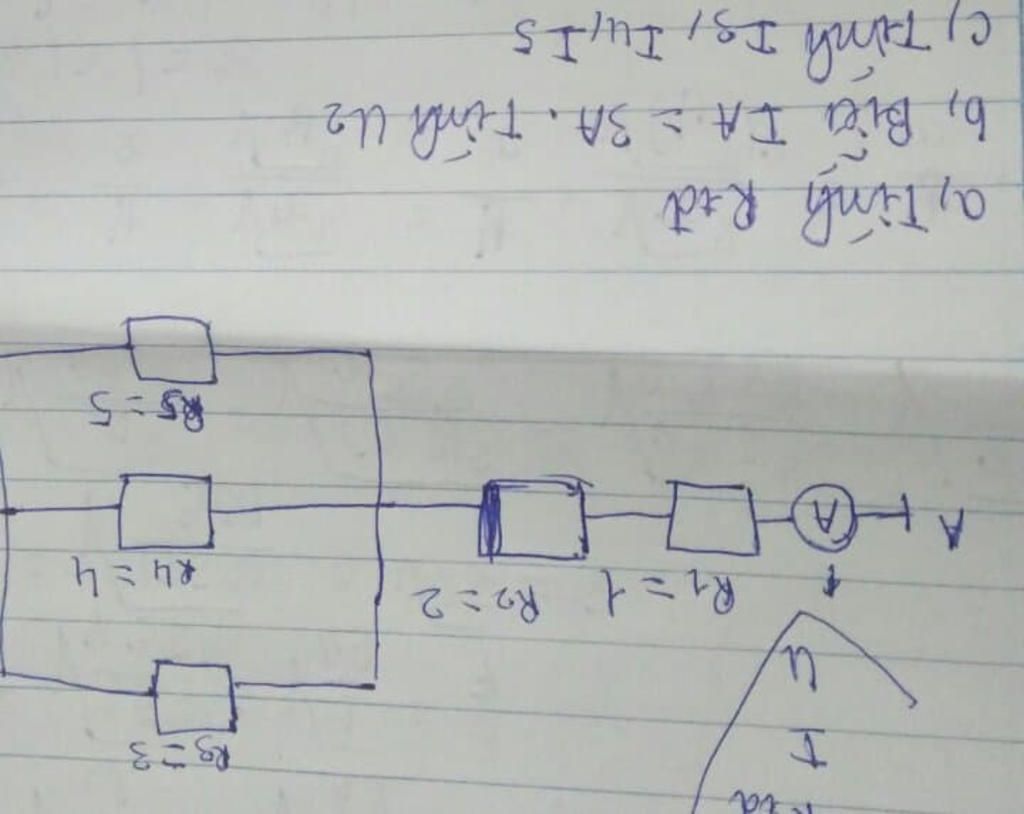 I
U
R3 = 3
R1 = 1
R2 = 2
R4 = 4
A
A
R5 = 5
a, Tính Rtđ
b, Biết IA = 3A. Tính U2
c, Tính I3, I4, I5